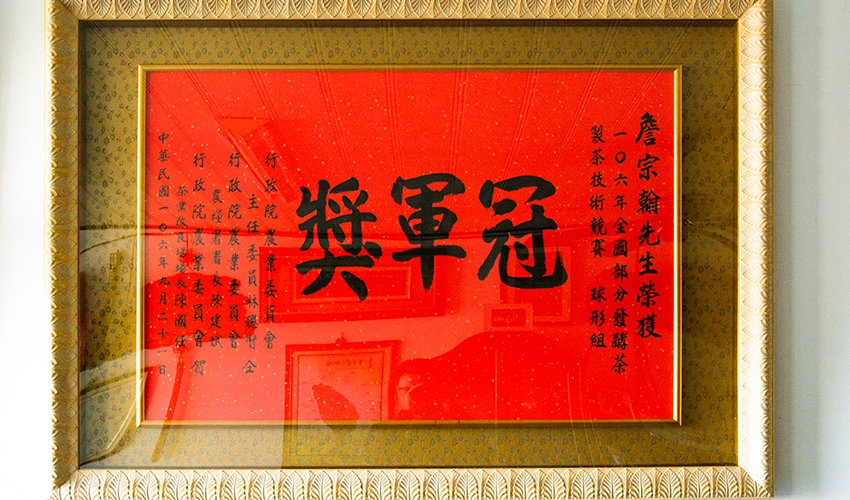 詹宗翰先生榮獲
一〇六年全國部分發酵茶
製茶技術競賽 球形組
冠軍獎
行政院農業委員會
主任委員林聰賢 仝
行政院農業委員會
農糧署署長陳建斌
行政院農業委員會 賀
茶業改良場場長陳國任
中華民國一〇六年九月二十一日